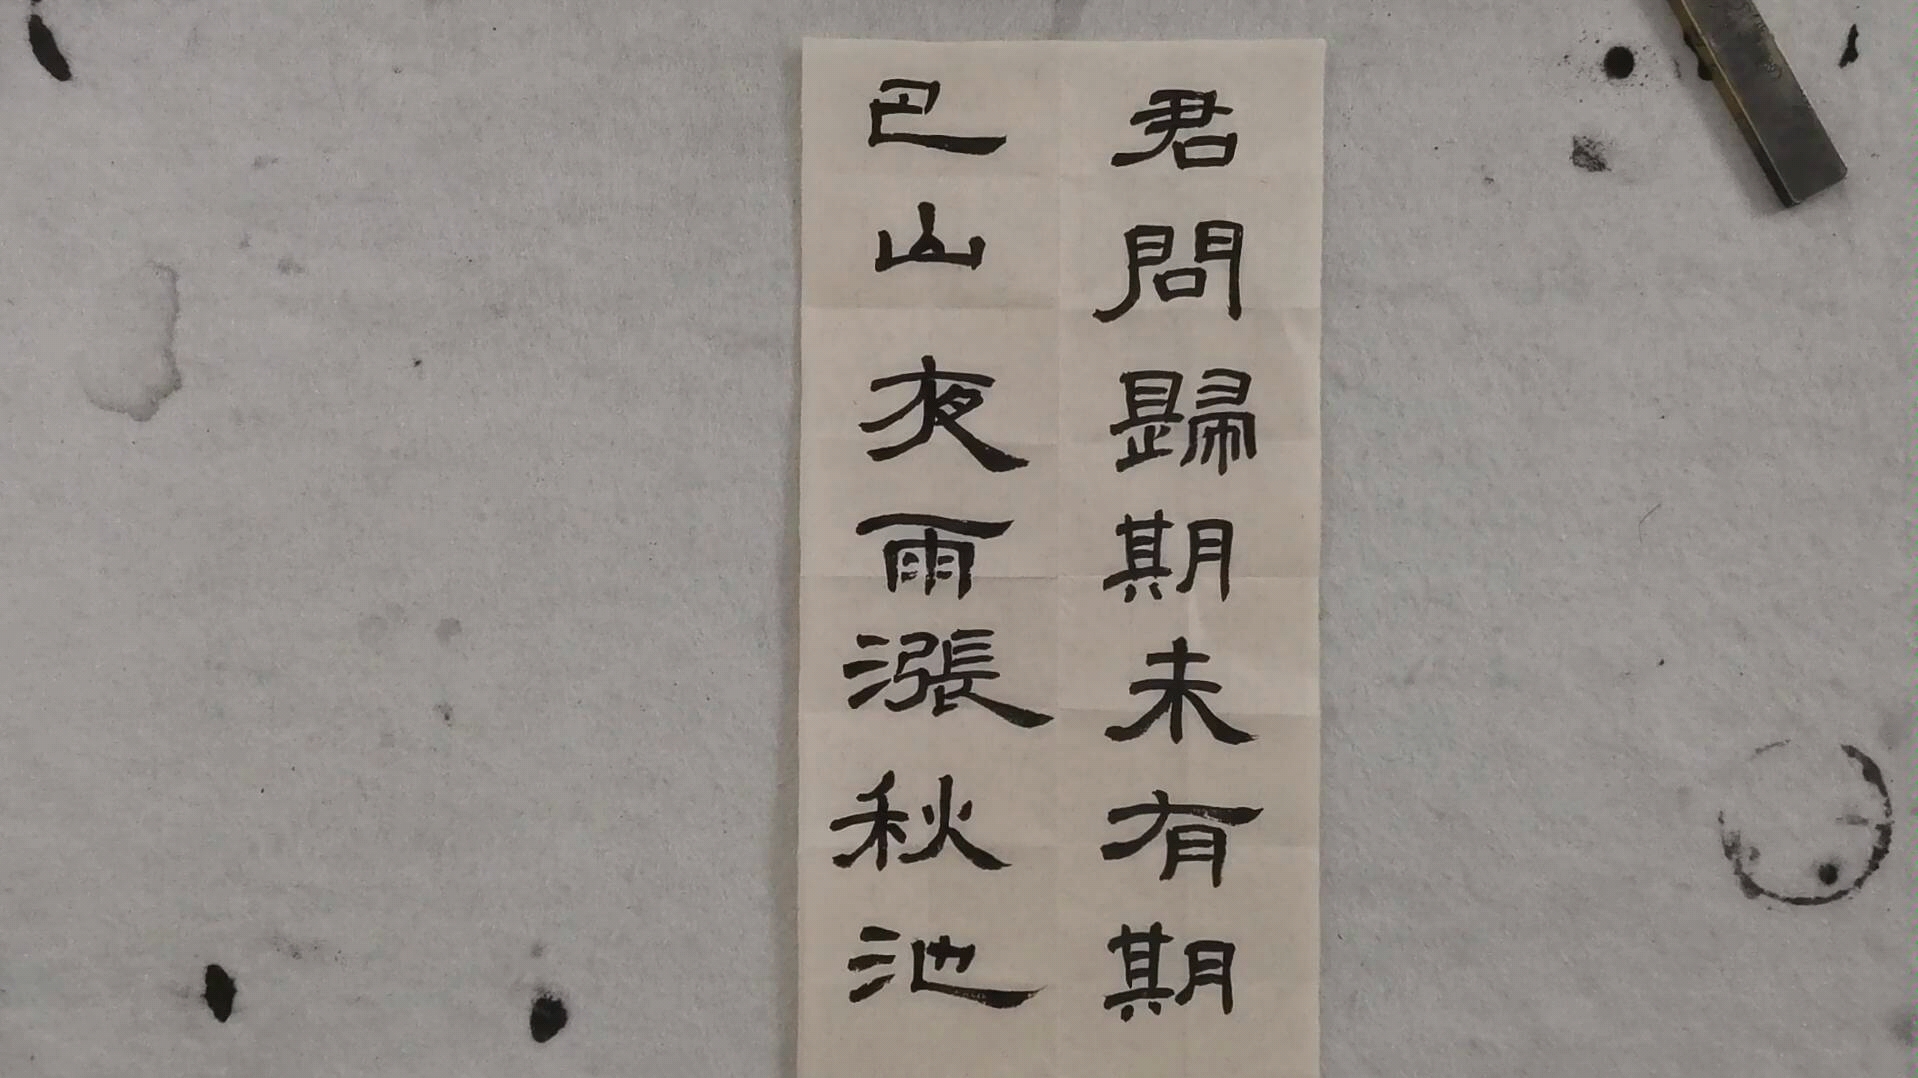 君問歸期未有期
巴山夜雨漲秋池